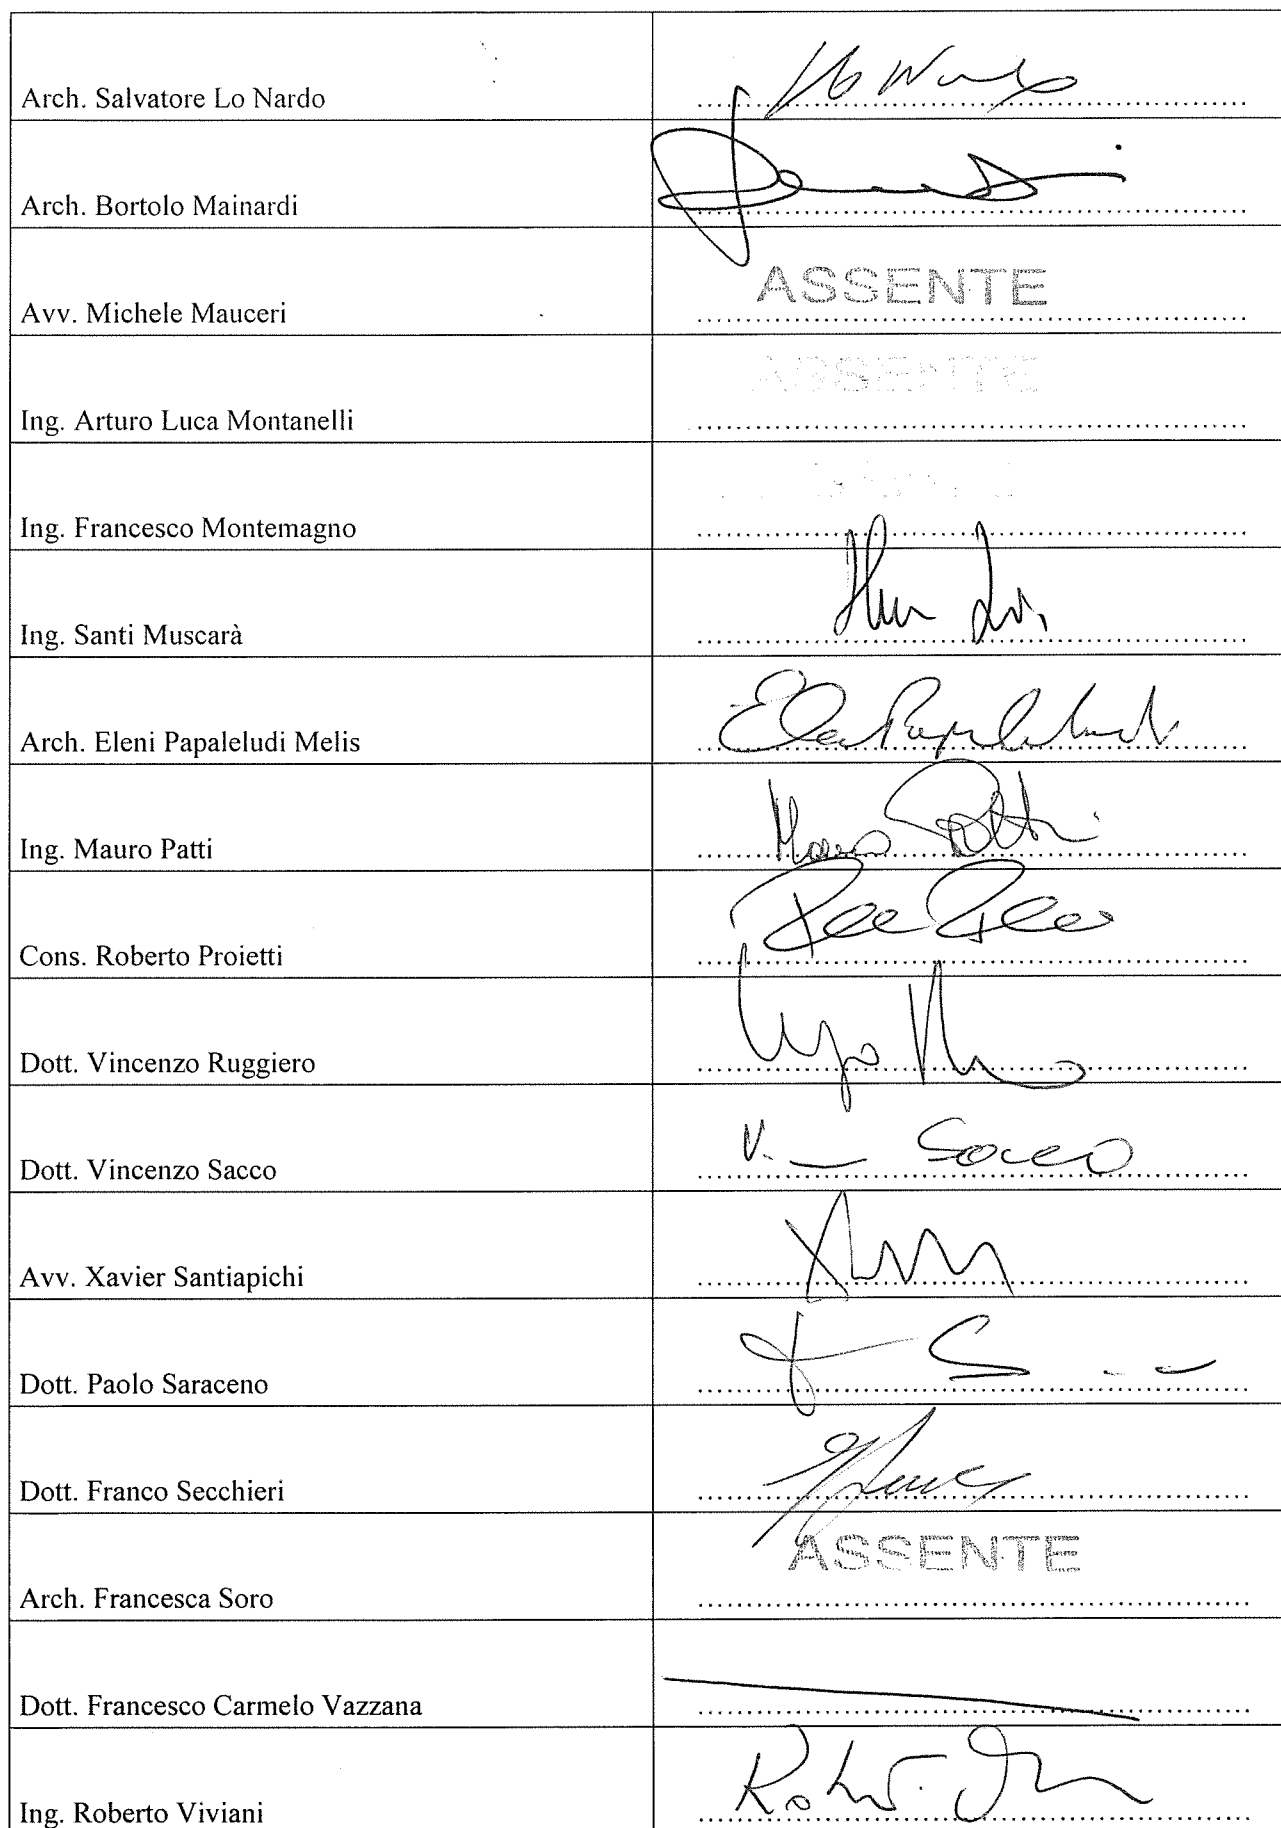 Arch. Salvatore Lo Nardo
Lo Nardo
Arch. Bortolo Mainardi
Avv. Michele Mauceri
ASSENTE
Ing. Arturo Luca Montanelli
ASSENTE
Ing. Francesco Montemagno
Ing. Santi Muscarà
Arch. Eleni Papaleludi Melis
Ing. Mauro Patti
Mauro Patti
Cons. Roberto Proietti
Dott. Vincenzo Ruggiero
Dott. Vincenzo Sacco
V. Sacco
Avv. Xavier Santiapichi
Dott. Paolo Saraceno
Dott. Franco Secchieri
Arch. Francesca Soro
ASSENTE
Dott. Francesco Carmelo Vazzana
Ing. Roberto Viviani